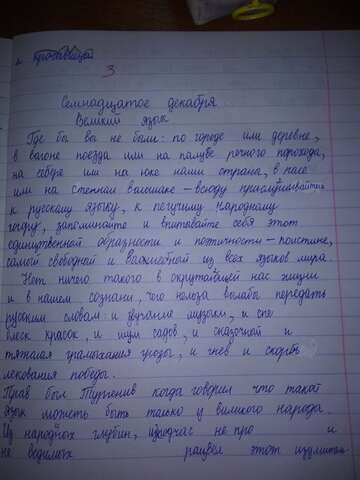 3
Семнадцатое декабря
Великий язык
Где бы вы не были: по городе или деревне,
в вагоне поезда или на палубе речного парохода,
на севре или на юке наши страна, в лесе
или на степнаи валошаке – всюду прислушивайтися
к русскому языку, к певучиму народному
говору, запоминайте и впитывайте себя этот
единственной образности и поэтичности – поистине,
самой свободной и важностной из всех языков мира.
Нет ничего такого в окружающей нас жизни
и в нашем сознани, что нельзя былобы передать
русским словам: и звучание музыки, и спе
блеск красок, и шум садов, и сказочной и
тяжолая грамыхания грозы, и гнев и скорбь
лекования победы.
Прав был Тургенив когда говорил что такой
Язык можеть быть только у виликого народа.
Из народных глубин, исподчас не про и
не ведимых расцвел этот изумител